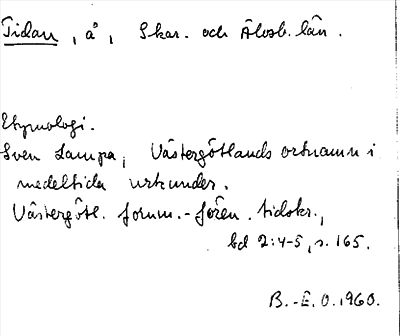 Tidan, å, Skar. och Älvsb. län.
Etymologi.
Sven Lampa, Västergötlands ortnamn i
medeltida urkunder.
Västergötl. fornm.-fören. tidskr.,
bd 2:4-5, s. 165.
B.-E. O. 1960.